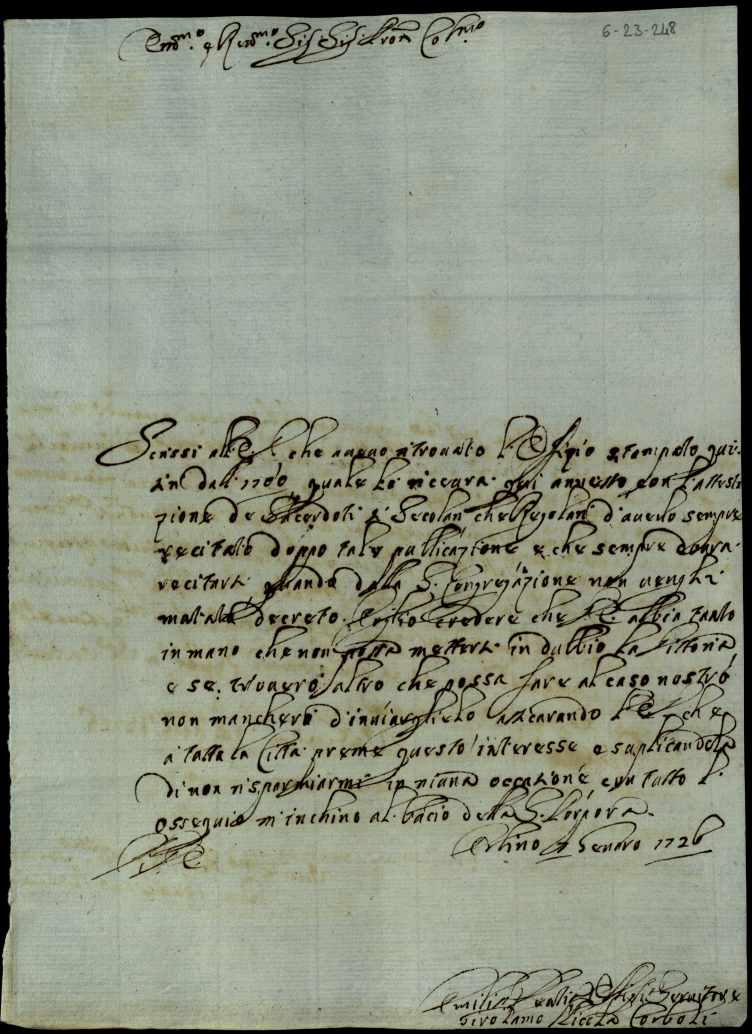 6-23-248
Em.mo e Rev.mo Sig. Sig. Pron Col.mo
Scrissi all'E. che aueuo ritrouato l'Offizio stampato qui
in dall 1706 quale lo riceuera qui annesso con l'attesta
zione de Sacerdoti si Secolari che Regolari d'auerlo sempre
recitato doppo tale publicazione e che sempre
recitare quando dalla S. Congregazione non uenghi
decreto. Voglio credere che l'E. abbia tanto
in mano che non possa mettersi in dubbio la Vittoria
e se trouerò altro che possa fare al caso nostro
non mancherò d'inuiarglielo assicurando l'E. che
a tutta la Città preme questo interesse e suplicandola
di non risparmiarmi in niuna occazione con tutto l'
ossequio m'inchino al bacio della S. Porpora.
Vrbino Genaro 1726
Seruitore
Girolamo Nicola Corboli